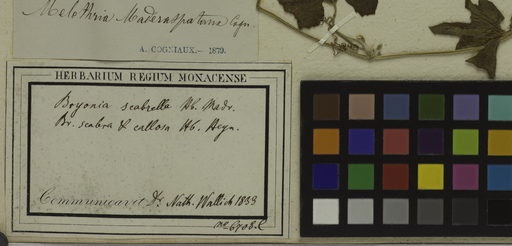 Melothria Maderaspatana Cogn.
A. COGNIAUX.— 1879.
HERBARIUM REGIUM MONACENSE
Bryonia scabrella Hb. Madr.
Br. scabra & callosa Hb. Heyn.
Communicavit Dr. Nath. Wallich 1833
no 6708.C